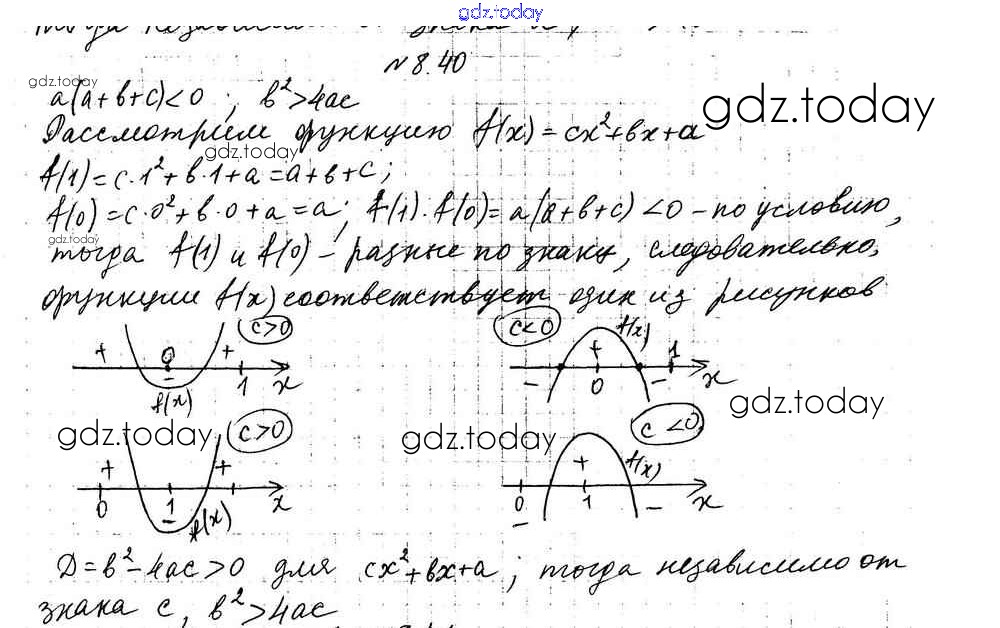 gdz.today
№ 8.40
gdz.today
a(a+b+c)<0 ; b²>4ac
gdz.today
Рассмотрим функцию f(x)=cx²+bx+a
gdz.today
f(1)=c·1²+b·1+a=a+b+c;
f(0)=c·0²+b·0+a=a; f(1)·f(0)=a(a+b+c)<0 – по условию,
gdz.today
тогда f(1) и f(0) – разные по знаку, следовательно,
функции f(x) соответствует один из рисунков
c>0
+ 0 +
– 1 x
f(x)
c<0 f(x)
+ 1
– 0 – x
gdz.today
gdz.today
c>0
+ +
0 1 x
– f(x)
gdz.today
c<0
+ f(x)
0 1 x
– –
D=b²–4ac>0 для cx²+bx+a; тогда независимо от
знака c, b²>4ac